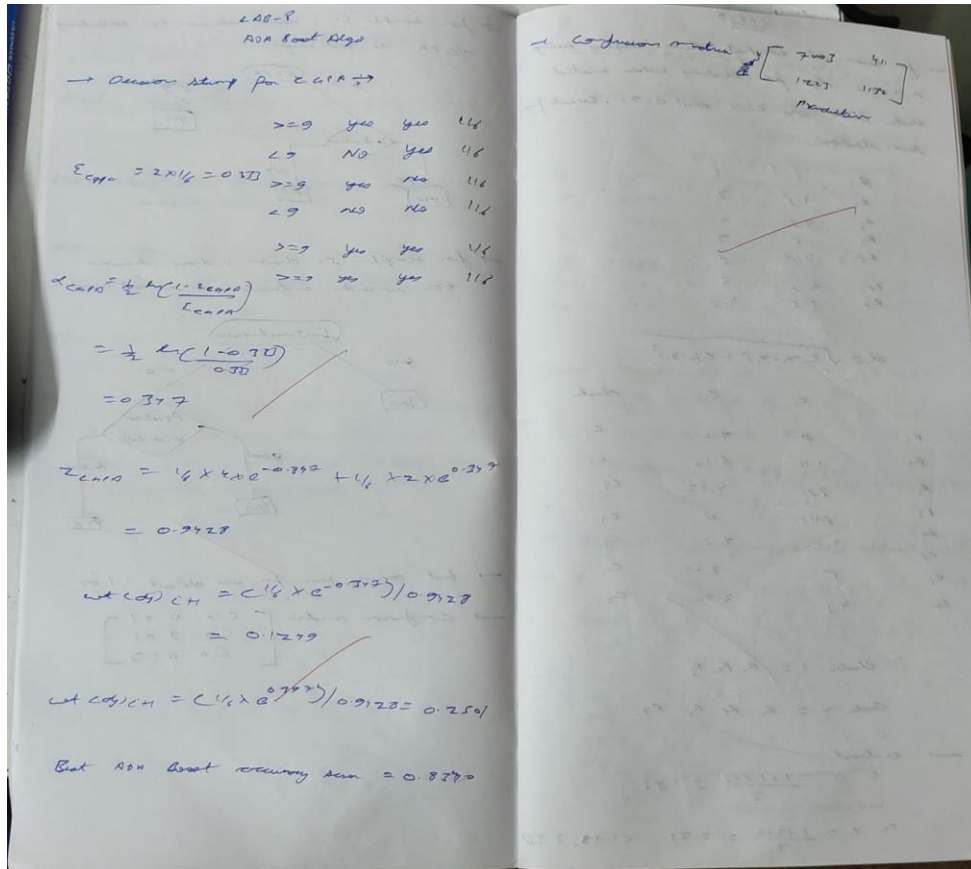 LAB-8
ADA Boost Algo
→ Decision stump for CGPA ⇒
>=9 yes yes 1/6
<9 No yes 1/6
ε_CGPA = 2 x 1/6 = 0.333
>=9 yes No 1/6
<9 No No 1/6
>=9 yes yes 1/6
>=9 yes yes 1/6
α_CGPA = 1/2 ln(1 - ε_CGPA / ε_CGPA)
= 1/2 ln(1 - 0.333 / 0.333)
= 0.347
Z_CGPA = 1/6 x 4 x e^-0.347 + 1/6 x 2 x e^0.347
= 0.9428
wt(dj)i+1 = (1/6 x e^-0.347)/0.9428
= 0.1249
wt(dj)i+1 = (1/6 x e^0.347)/0.9428 = 0.2501
Best ADA Boost accuracy = 0.8330
→ Confusion matrix
[ 7003 411
1223 1132 ]
Prediction